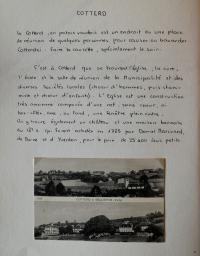 COTTERD
Le Cotterd, en patois vaudois est un endroit ou une place
de réunion de quelques personnes, pour causer ou bavarder
Cotterdzi : faire la causette, spécialement le soir.
C'est à Cotterd que se trouvent l'église, la cure,
l'école et la salle de réunion de la Municipalité et des
diverses sociétés locales (chœur d'hommes, puis chœur
mixte et chœur d'enfants). L'église est une construction
très ancienne composée d'une nef, sans chœur, ni
bas-côtés, avec, au fond, une fenêtre plein cintre.
On y trouve également un château et une maison bernoise
qui furent achetés en 1785 par Daniel
de et d'Yverdon, pour le prix de 25 000 livres petits
COTTERD & BELLERIVE